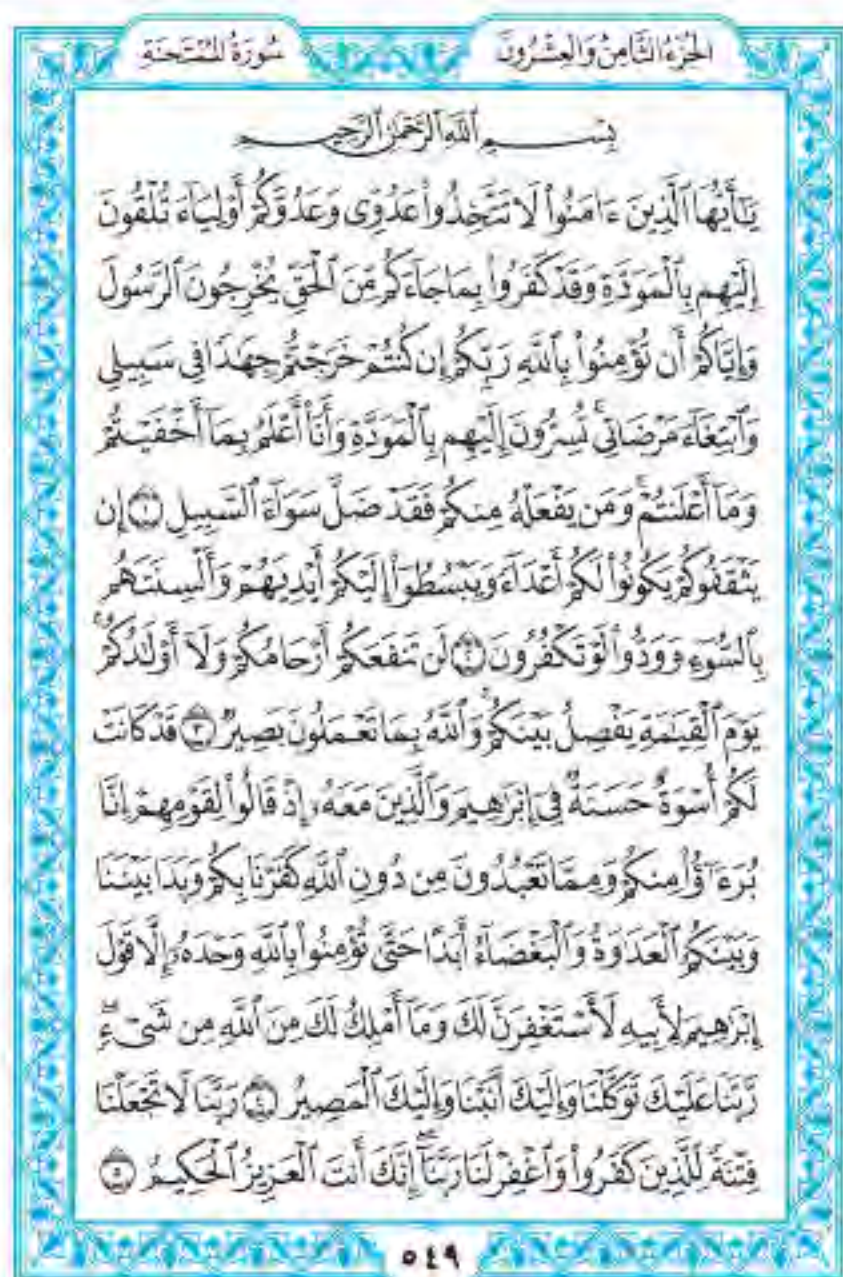 الجزء الثامن والعشرون
سورة الممتحنة
بِسْمِ ٱللَّهِ ٱلرَّحْمَٰنِ ٱلرَّحِيمِ
يَٰٓأَيُّهَا ٱلَّذِينَ ءَامَنُوا۟ لَا تَتَّخِذُوا۟ عَدُوِّى وَعَدُوَّكُمْ أَوْلِيَآءَ تُلْقُونَ
إِلَيْهِم بِٱلْمَوَدَّةِ وَقَدْ كَفَرُوا۟ بِمَا جَآءَكُم مِّنَ ٱلْحَقِّ يُخْرِجُونَ ٱلرَّسُولَ
وَإِيَّاكُمْ أَن تُؤْمِنُوا۟ بِٱللَّهِ رَبِّكُمْ إِن كُنتُمْ خَرَجْتُمْ جِهَٰدًا فِى سَبِيلِى
وَٱبْتِغَآءَ مَرْضَاتِى ۚ تُسِرُّونَ إِلَيْهِم بِٱلْمَوَدَّةِ وَأَنَا۠ أَعْلَمُ بِمَآ أَخْفَيْتُمْ
وَمَآ أَعْلَنتُمْ ۚ وَمَن يَفْعَلْهُ مِنكُمْ فَقَدْ ضَلَّ سَوَآءَ ٱلسَّبِيلِ ١ إِن
يَثْقَفُوكُمْ يَكُونُوا۟ لَكُمْ أَعْدَآءً وَيَبْسُطُوٓا۟ إِلَيْكُمْ أَيْدِيَهُمْ وَأَلْسِنَتَهُم
بِٱلسُّوٓءِ وَوَدُّوا۟ لَوْ تَكْفُرُونَ ٢ لَن تَنفَعَكُمْ أَرْحَامُكُمْ وَلَآ أَوْلَٰدُكُمْ ۚ
يَوْمَ ٱلْقِيَٰمَةِ يَفْصِلُ بَيْنَكُمْ ۚ وَٱللَّهُ بِمَا تَعْمَلُونَ بَصِيرٌ ٣ قَدْ كَانَتْ
لَكُمْ أُسْوَةٌ حَسَنَةٌ فِىٓ إِبْرَٰهِيمَ وَٱلَّذِينَ مَعَهُۥٓ إِذْ قَالُوا۟ لِقَوْمِهِمْ إِنَّا
بُرَءَٰٓؤُا۟ مِنكُمْ وَمِمَّا تَعْبُدُونَ مِن دُونِ ٱللَّهِ كَفَرْنَا بِكُمْ وَبَدَا بَيْنَنَا
وَبَيْنَكُمُ ٱلْعَدَٰوَةُ وَٱلْبَغْضَآءُ أَبَدًا حَتَّىٰ تُؤْمِنُوا۟ بِٱللَّهِ وَحْدَهُۥٓ إِلَّا قَوْلَ
إِبْرَٰهِيمَ لِأَبِيهِ لَأَسْتَغْفِرَنَّ لَكَ وَمَآ أَمْلِكُ لَكَ مِنَ ٱللَّهِ مِن شَىْءٍ ۖ
رَّبَّنَا عَلَيْكَ تَوَكَّلْنَا وَإِلَيْكَ أَنَبْنَا وَإِلَيْكَ ٱلْمَصِيرُ ٤ رَبَّنَا لَا تَجْعَلْنَا
فِتْنَةً لِّلَّذِينَ كَفَرُوا۟ وَٱغْفِرْ لَنَا رَبَّنَآ ۖ إِنَّكَ أَنتَ ٱلْعَزِيزُ ٱلْحَكِيمُ ٥
٥٤٩